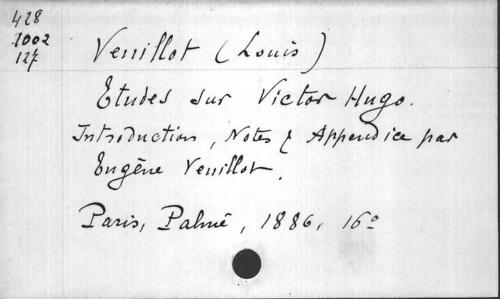 428
1002
127
Veuillot (Louis)
Etudes sur Victor Hugo.
Introduction, Notes & Appendice par
Eugène Veuillot.
Paris, Palmé, 1886, 16º